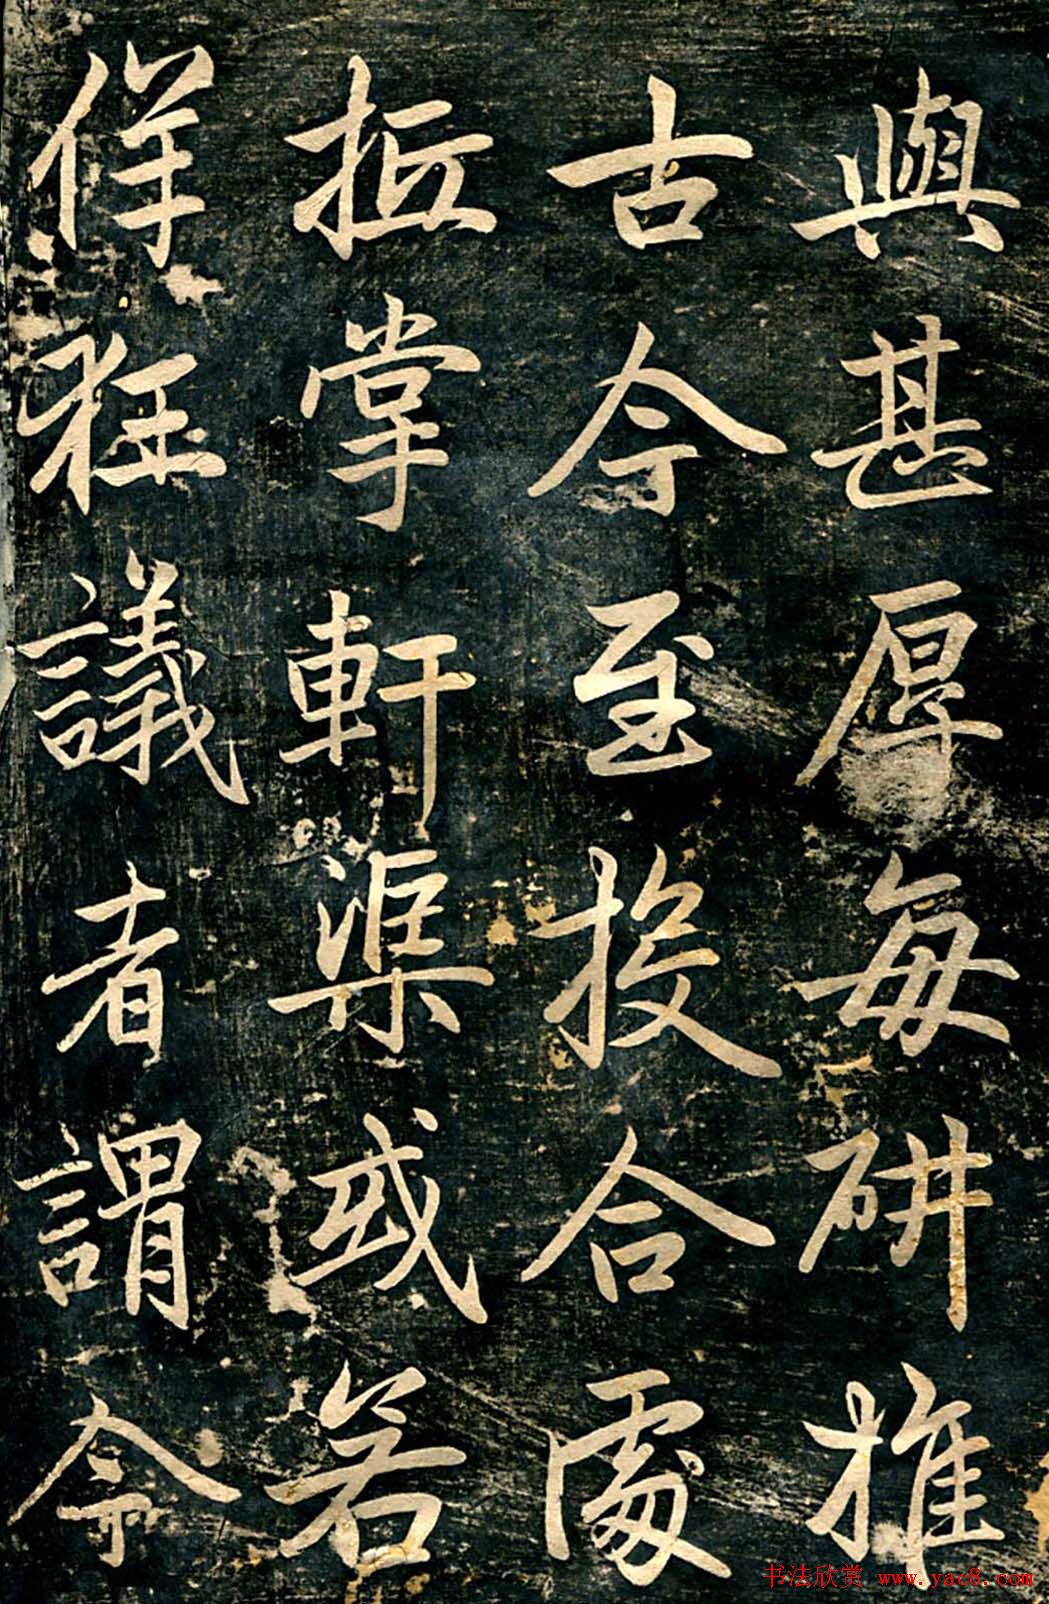 與甚厚每研推
古今至投合處
抵掌軒渠或若
佯狂議者謂令
书法欣赏 www.yac8.com